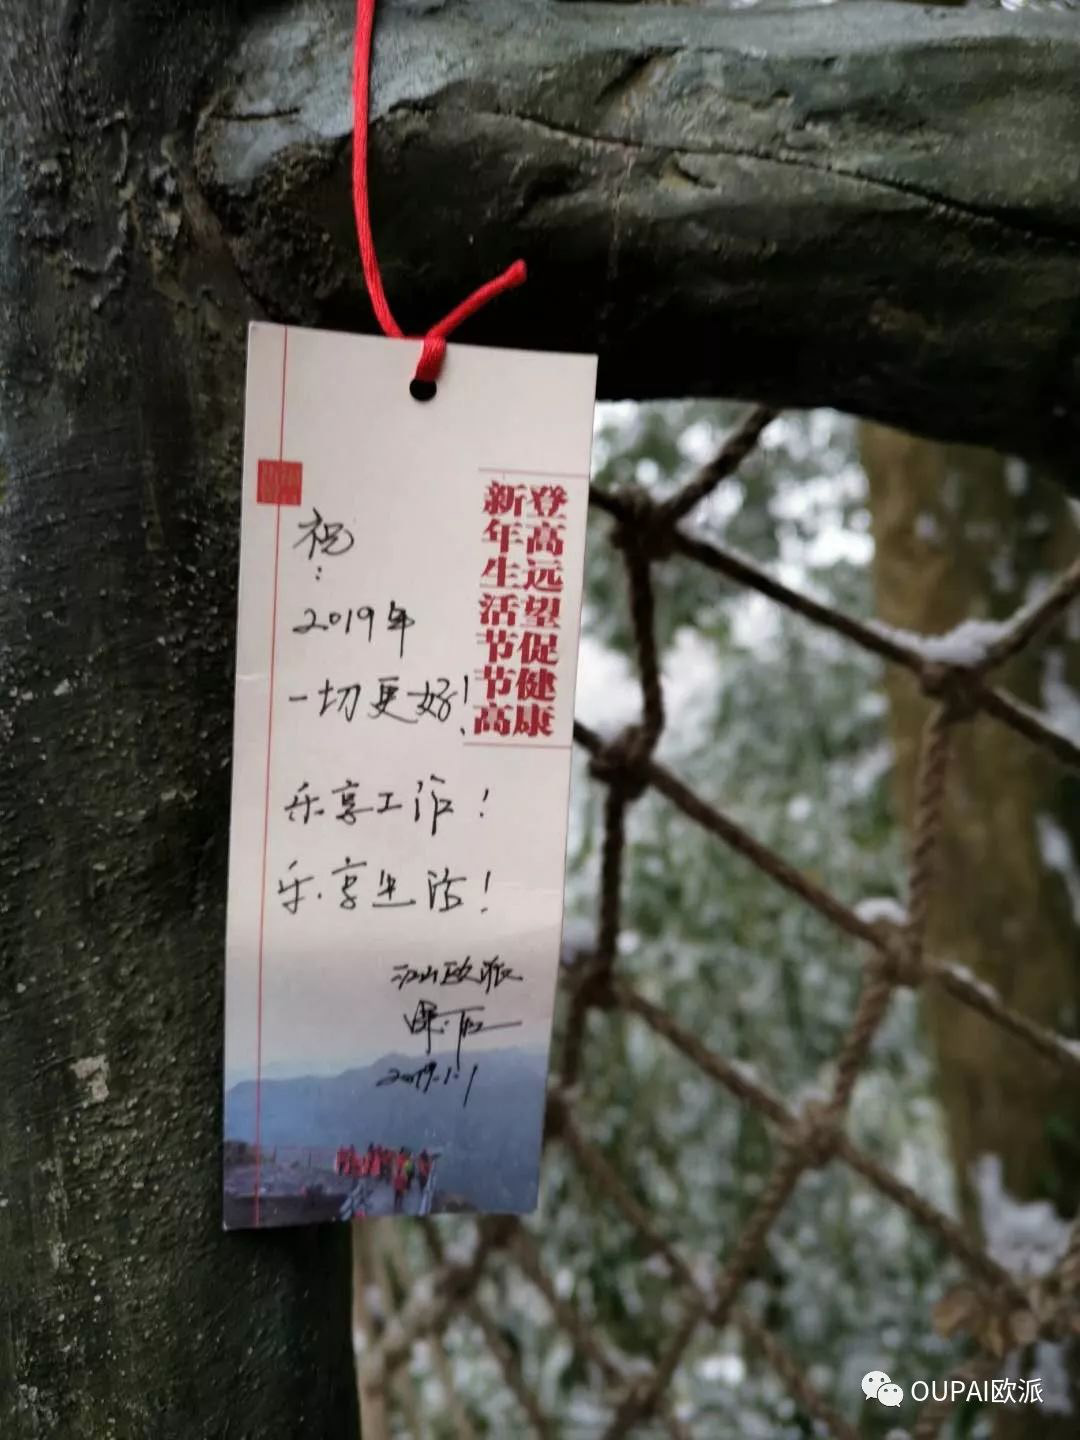 登高远望促健康
新年生活节节高
祝:
2019年
一切更好!
乐享工作!
乐享生活!
江山欧派
2019.1.1
OUPAI欧派